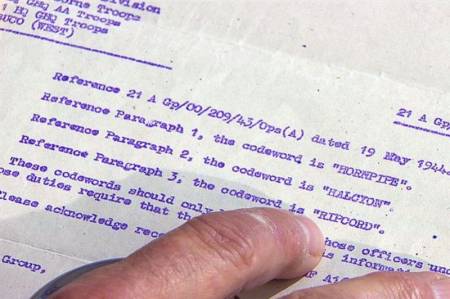 Division
Airborne Troops
GHQ AA Troops
1 HQ GHQ Troops
BUCO (WEST)
21 A Gp
Reference 21 A Gp/00/209/43/Ops(A) dated 19 May 1944
Reference Paragraph 1, the codeword is "HORNPIPE".
Reference Paragraph 2, the codeword is "HALCYON".
Reference Paragraph 3, the codeword is "RIPCORD".
These codewords should only those officers
whose duties require that this information
Please acknowledge
Group,